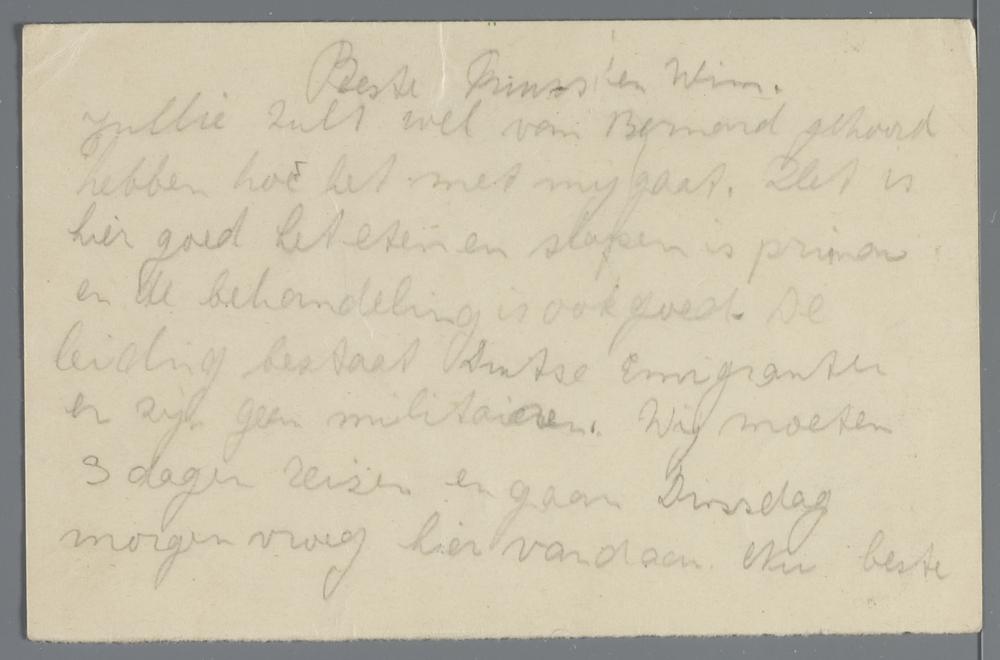 Beste en Wim.
Jullie zult wel van Bernard gehoord
hebben hoe het met my gaat. Het is
hier goed het eten en slapen is prima
en de behandeling is ook goed. De
leiding bestaat Duitse Emigranten
er zijn geen militairen. Wij moeten
3 dagen reizen en gaan Dinsdag
morgen vroeg hier vandaan. Nu beste